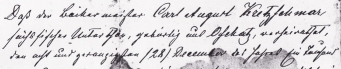 Daß der Bäckermeister Carl August Kretzschmar
sächsischer Unterthan, gebürtig aus Oschatz, verheirathet,
den acht und zwanzigsten /28/ December des Jahres Ein Tausend